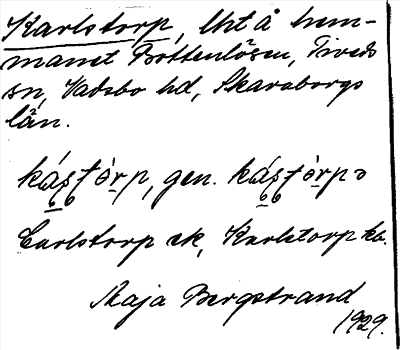 Karlstorp, lht å hem-
manet Bottenlösen, Tiveds
sn, Vadsbo hd, Skaraborgs
län.
kás̯t̯òr̯p, gen. kás̯t̯òr̯pə
Carlstorp ek, Karlstorp kb.
Maja Bergstrand
1929.